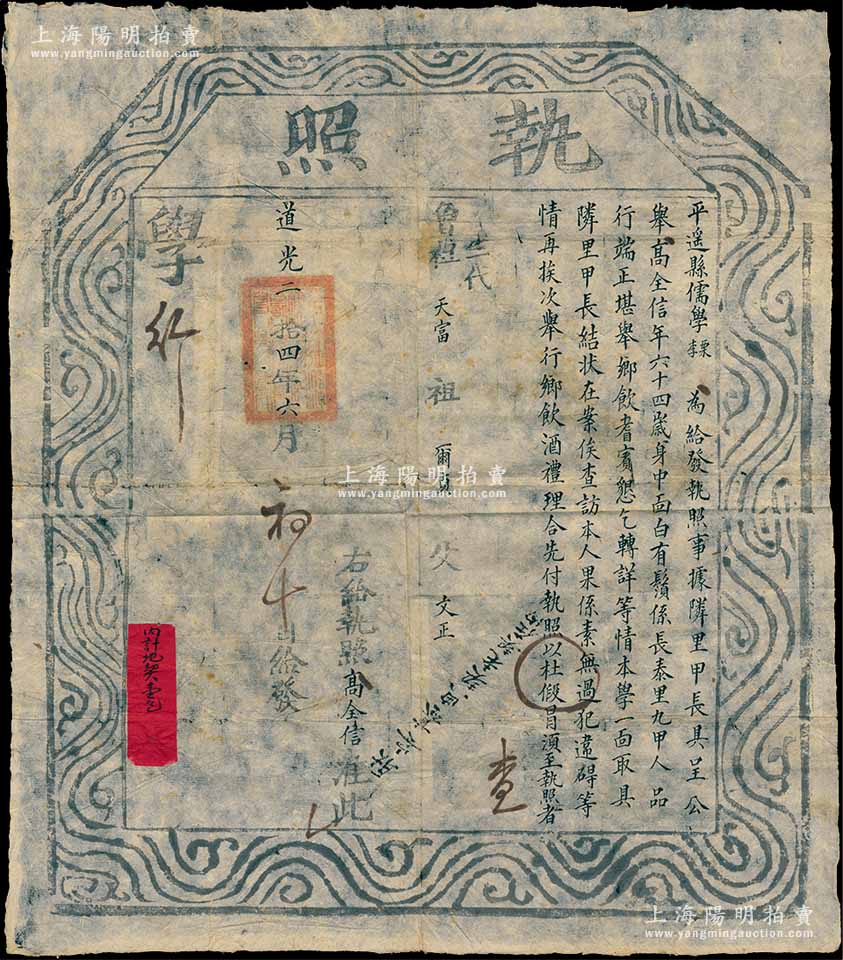 上海陽明拍賣
www.yangmingauction.com
上海陽明拍賣
www.yangmingauction.com
執照
平遥縣儒學 李栗 為給發執照事據隣里甲長具呈公
舉高全信年六十四歲身中面白有鬚係長泰里九甲人品
行端正堪舉鄉飲耆賓懇乞轉詳等情本學一面取具
隣里甲長結狀在案俟查訪本人果係素無過犯違碍等
情再挨次舉行鄉飲酒禮理合先付執照以杜假冒須至執照者
三代
曾祖 天富 祖 爾 父 文正
查
右給執照高全信准此
道光二拾四年六月初十日給發
學
行
內計地契壹包
上海陽明拍賣
www.yangmingauction.com
上海陽明拍賣
www.yangmingauction.com